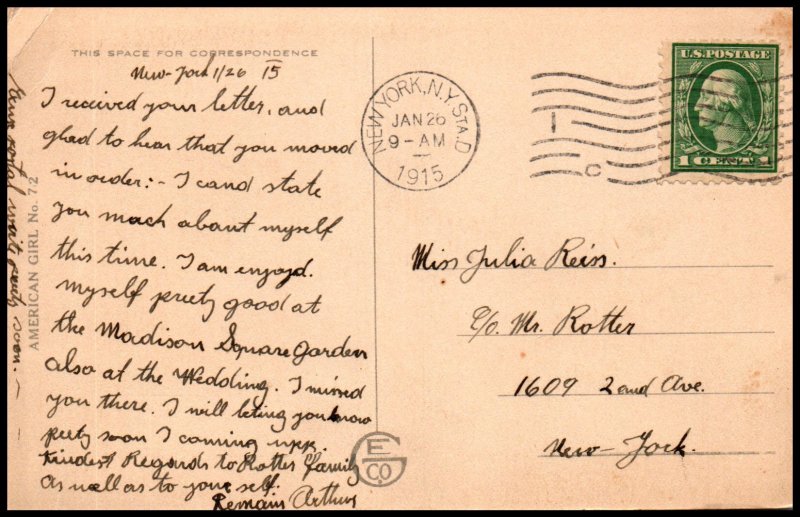 THIS SPACE FOR CORRESPONDENCE
New-York 1/26 15
I received your letter, and
glad to hear that you moved
in order:- I cand state
you mach about myself
this time. I am enjoyd.
myself prety good at
the Madison Square Garden
also at the Wedding. I missed
you there. I will leting you know
prety soon I coming upp.
Kindest Regards to Rotter family
as well as to your self.
Remain Arthur
soon.-
AMERICAN GIRL No. 72
E G CO.
NEW YORK, N.Y. STA. D
JAN 26
9-AM
1915
I
C
U.S. POSTAGE
1 CENT 1
Miss Julia Reiss.
c/o. Mr. Rotter
1609 2and Ave.
New-York.